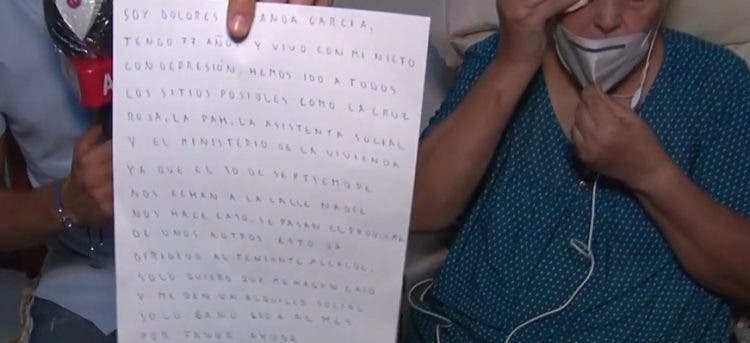 SOY DOLORES ANDA GARCÍA,
TENGO 77 AÑOS Y VIVO CON MI NIETO
CON DEPRESIÓN, HEMOS IDO A TODOS
LOS SITIOS POSIBLES COMO LA CRUZ
ROJA, LA PAH, LA ASISTENTA SOCIAL
Y EL MINISTERIO DE LA VIVIENDA
YA QUE EL 30 DE SEPTIEMBRE
NOS ECHAN A LA CALLE NADIE
NOS HACE CASO, SE PASAN EL PROBLEMA
DE UNOS A OTROS ESTO VA
DIRIGIDO AL TENIENTE ALCALDE,
SOLO QUIERO QUE ME HAGAN CASO
Y ME DEN UN ALQUILER SOCIAL
SOLO GANO AL MES
POR FAVOR AYUDA
A